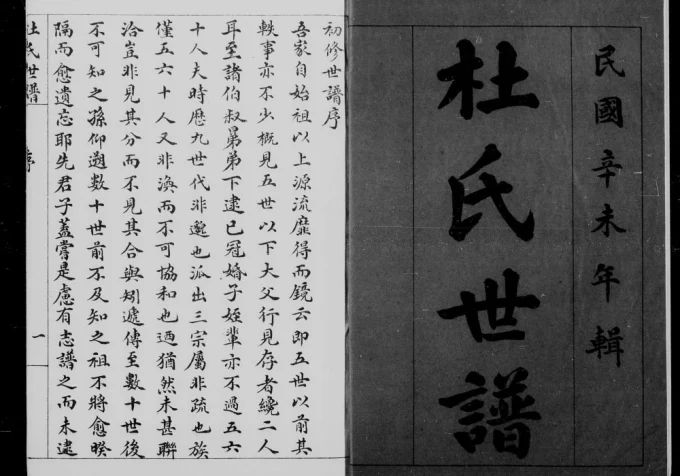 民國辛未年輯
杜氏世譜
初修世譜序
吾家自始祖以上源流靡得而鏡云即五世以前其
軼事亦不少概見五世以下大父行見存者纔二人
耳至諸伯叔㫷弟下逮已冠婚子姪輩亦不過五六
十人夫時歷九世代非邈也派出三宗屬非疏也族
僅五六十人又非渙而不可協和也迺猶然未甚聯
洽豈非見其分而不見其合與矧遞傳至數十世後
不可知之孫仰遡數十世前不及知之祖不將愈暌
隔而愈遺忘耶先君子蓋嘗是慮有志譜之而未逮
杜氏世譜
序
一